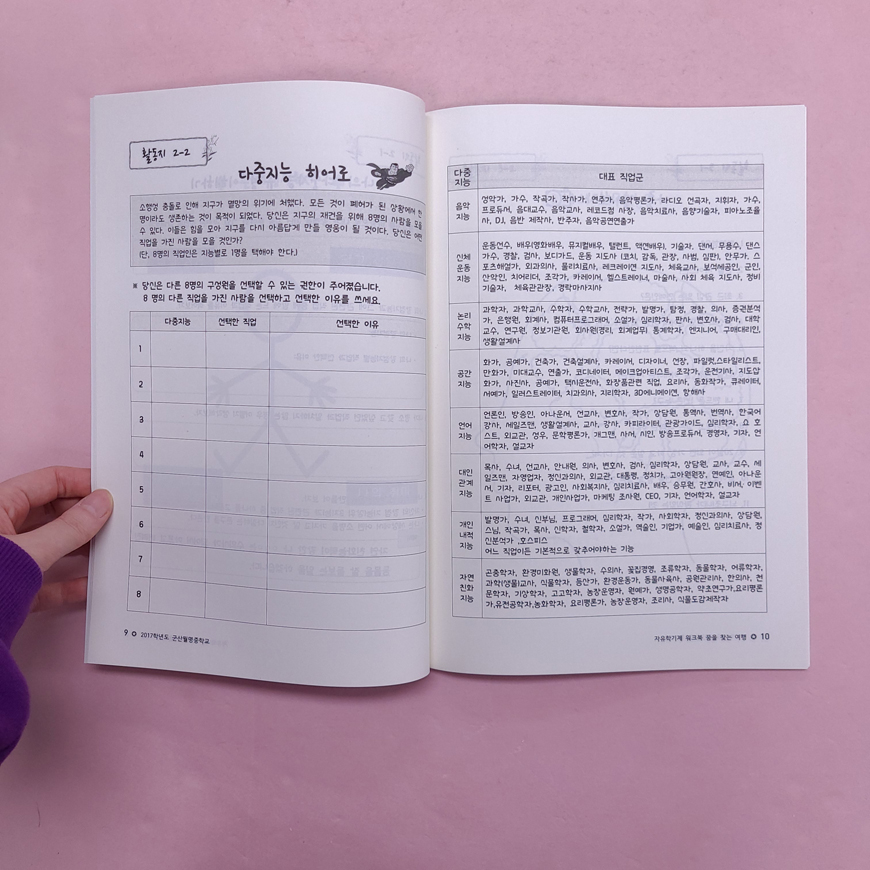 활동지 2-2
다중지능 히어로
소행성 충돌로 인해 지구가 멸망의 위기에 처했다. 모든 것이 폐허가 된 상황에서 한
명이라도 생존하는 것이 목적이 되었다. 당신은 지구의 재건을 위해 8명의 사람을 모을
수 있다. 이들은 힘을 모아 지구를 다시 아름답게 만들 영웅이 될 것이다. 당신은 어떤
직업을 가진 사람을 모을 것인가?
(단, 8명의 직업인은 지능별로 1명을 택해야 한다.)
※ 당신은 다른 8명의 구성원을 선택할 수 있는 권한이 주어졌습니다.
8 명의 다른 직업을 가진 사람을 선택하고 선택한 이유를 쓰세요.
다중지능 선택한 직업 선택한 이유
1
2
3
4
5
6
7
8
9 2017학년도 군산월명중학교
다중 지능 대표 직업군
음악 지능
성악가, 가수, 작곡가, 작사가, 연주가, 음악평론가, 라디오 선곡자, 지휘자, 가수,
프로듀서, 음대교수, 음악교사, 레코드점 사장, 음악치료사, 음향기술자, 피아노조율
사, DJ, 음반 제작사, 반주자, 음악공연연출가
신체 운동 지능
운동선수, 배우(영화배우, 뮤지컬배우, 탤런트, 액션배우), 기술자, 댄서, 무용수, 댄스
가수, 경찰, 검사, 보디가드, 운동 지도사 (코치, 감독, 관장, 사범, 심판), 안무가, 스
포츠해설가, 외과의사, 물리치료사, 레크레이션 지도사, 체육교사, 보석세공인, 군인,
산악인, 치어리더, 조각가, 카레이서, 헬스트레이너, 마술사, 사회 체육 지도사, 정비
기술자, 체육관관장, 경락마사지사
논리 수학 지능
과학자, 과학교사, 수학자, 수학교사, 전략가, 발명가, 탐정, 경찰, 의사, 증권분석
가, 은행원, 회계사, 컴퓨터프로그래머, 소설가, 심리학자, 판사, 변호사, 검사, 대학
교수, 연구원, 정보기관원, 회사원(경리, 회계업무) 통계학자, 엔지니어, 구매대리인,
생활설계사
공간 지능
화가, 공예가, 건축가, 건축설계사, 카레이서, 디자이너, 선장, 파일럿,스타일리스트,
만화가, 미대교수, 연출가, 코디네이터, 메이크업아티스트, 조각가, 운전기사, 지도삽
화가, 사진사, 공예가, 택시운전사, 화장품관련 직업, 요리사, 동화작가, 큐레이터,
서예가, 일러스트레이터, 치과의사, 지리학자, 3D에니메이션, 항해사
언어 지능
언론인, 방송인, 아나운서, 선교사, 변호사, 작가, 상담원, 통역사, 번역사, 한국어
강사, 세일즈맨, 생활설계사, 교사, 강사, 카피라이터, 관광가이드, 심리학자, 쇼 호
스트, 외교관, 성우, 문학평론가, 개그맨, 사서, 시인, 방송프로듀서, 경영자, 기자, 언
어학자, 설교자
대인 관계 지능
목사, 수녀, 선교사, 안내원, 의사, 변호사, 검사, 심리학자, 상담원, 교사, 교수, 세
일즈맨, 자영업자, 정신과의사, 외교관, 대통령, 정치가, 고아원원장, 연예인, 아나운
서, 기자, 리포터, 광고인, 사회복지사, 심리치료사, 배우, 승무원, 간호사, 비서, 이벤
트 사업가, 외교관, 개인사업가, 마케팅 조사원, CEO, 기자, 언어학자, 설교자
개인 내적 지능
발명가, 수녀, 신부님, 프로그래머, 심리학자, 작가, 사회학자, 정신과의사, 상담원,
스님, 작곡가, 목사, 신학자, 철학자, 소설가, 역술인, 기업가, 예술인, 심리치료사, 정
신분석가 ,호스피스
어느 직업이든 기본적으로 갖추어야하는 기능
자연 친화 지능
곤충학자, 환경미화원, 생물학자, 수의사, 꽃집경영, 조류학자, 동물학자, 어류학자,
과학(생물)교사, 식물학자, 등산가, 환경운동가, 동물사육사, 공원관리사, 한의사, 천
문학자, 기상학자, 고고학자, 농장운영자, 원예가, 생명공학자, 약초연구가,요리평론
가,유전공학자,농화학자, 요리평론가, 농장운영자, 조리사, 식물도감제작자
자유학기제 워크북 꿈을 찾는 여행 10